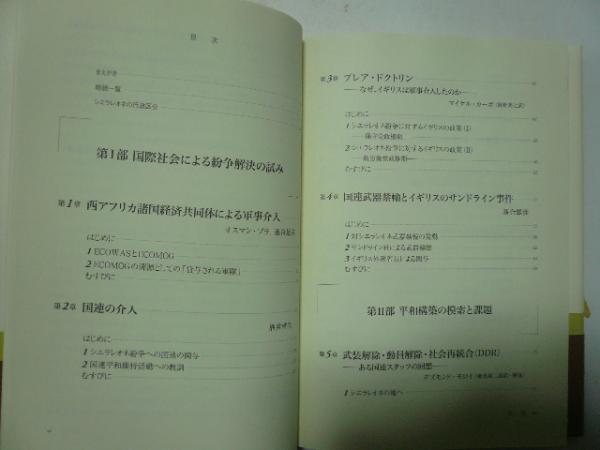 目 次
まえがき
略語一覧
シエラレオネの行政区分
第Ⅰ部 国際社会による紛争解決の試み
第1章 西アフリカ諸国経済共同体による軍事介入
オスマン・ブラ、落合雄彦
はじめに
1 ECOWASとECOMOG
2 ECOMOGの源泉としての「貸与される軍隊」
むすびに
第2章 国連の介入
はじめに
1 シエラレオネ紛争への国連の関与
2 国連平和維持活動への教訓
むすびに
第3章 ブレア・ドクトリン
――なぜ、イギリスは軍事介入したのか――
マイケル・カーボ
はじめに
1 シエラレオネ紛争に対するイギリスの政策(Ⅰ)
――保守党政権期――
2 シエラレオネ紛争に対するイギリスの政策(Ⅱ)
――労働党政権期――
むすびに
第4章 国連武器禁輸とイギリスのサンドライン事件
落合雄彦
はじめに
1 対シエラレオネ武器禁輸の発動
2 サンドライン社による武器輸送
3 イギリス外務省員による関与
むすびに
第Ⅱ部 平和構築の模索と課題
第5章 武装解除・動員解除・社会再統合(DDR)
――ある国連スタッフの回想――
デズモンド・モロイ
1 シエラレオネの地へ